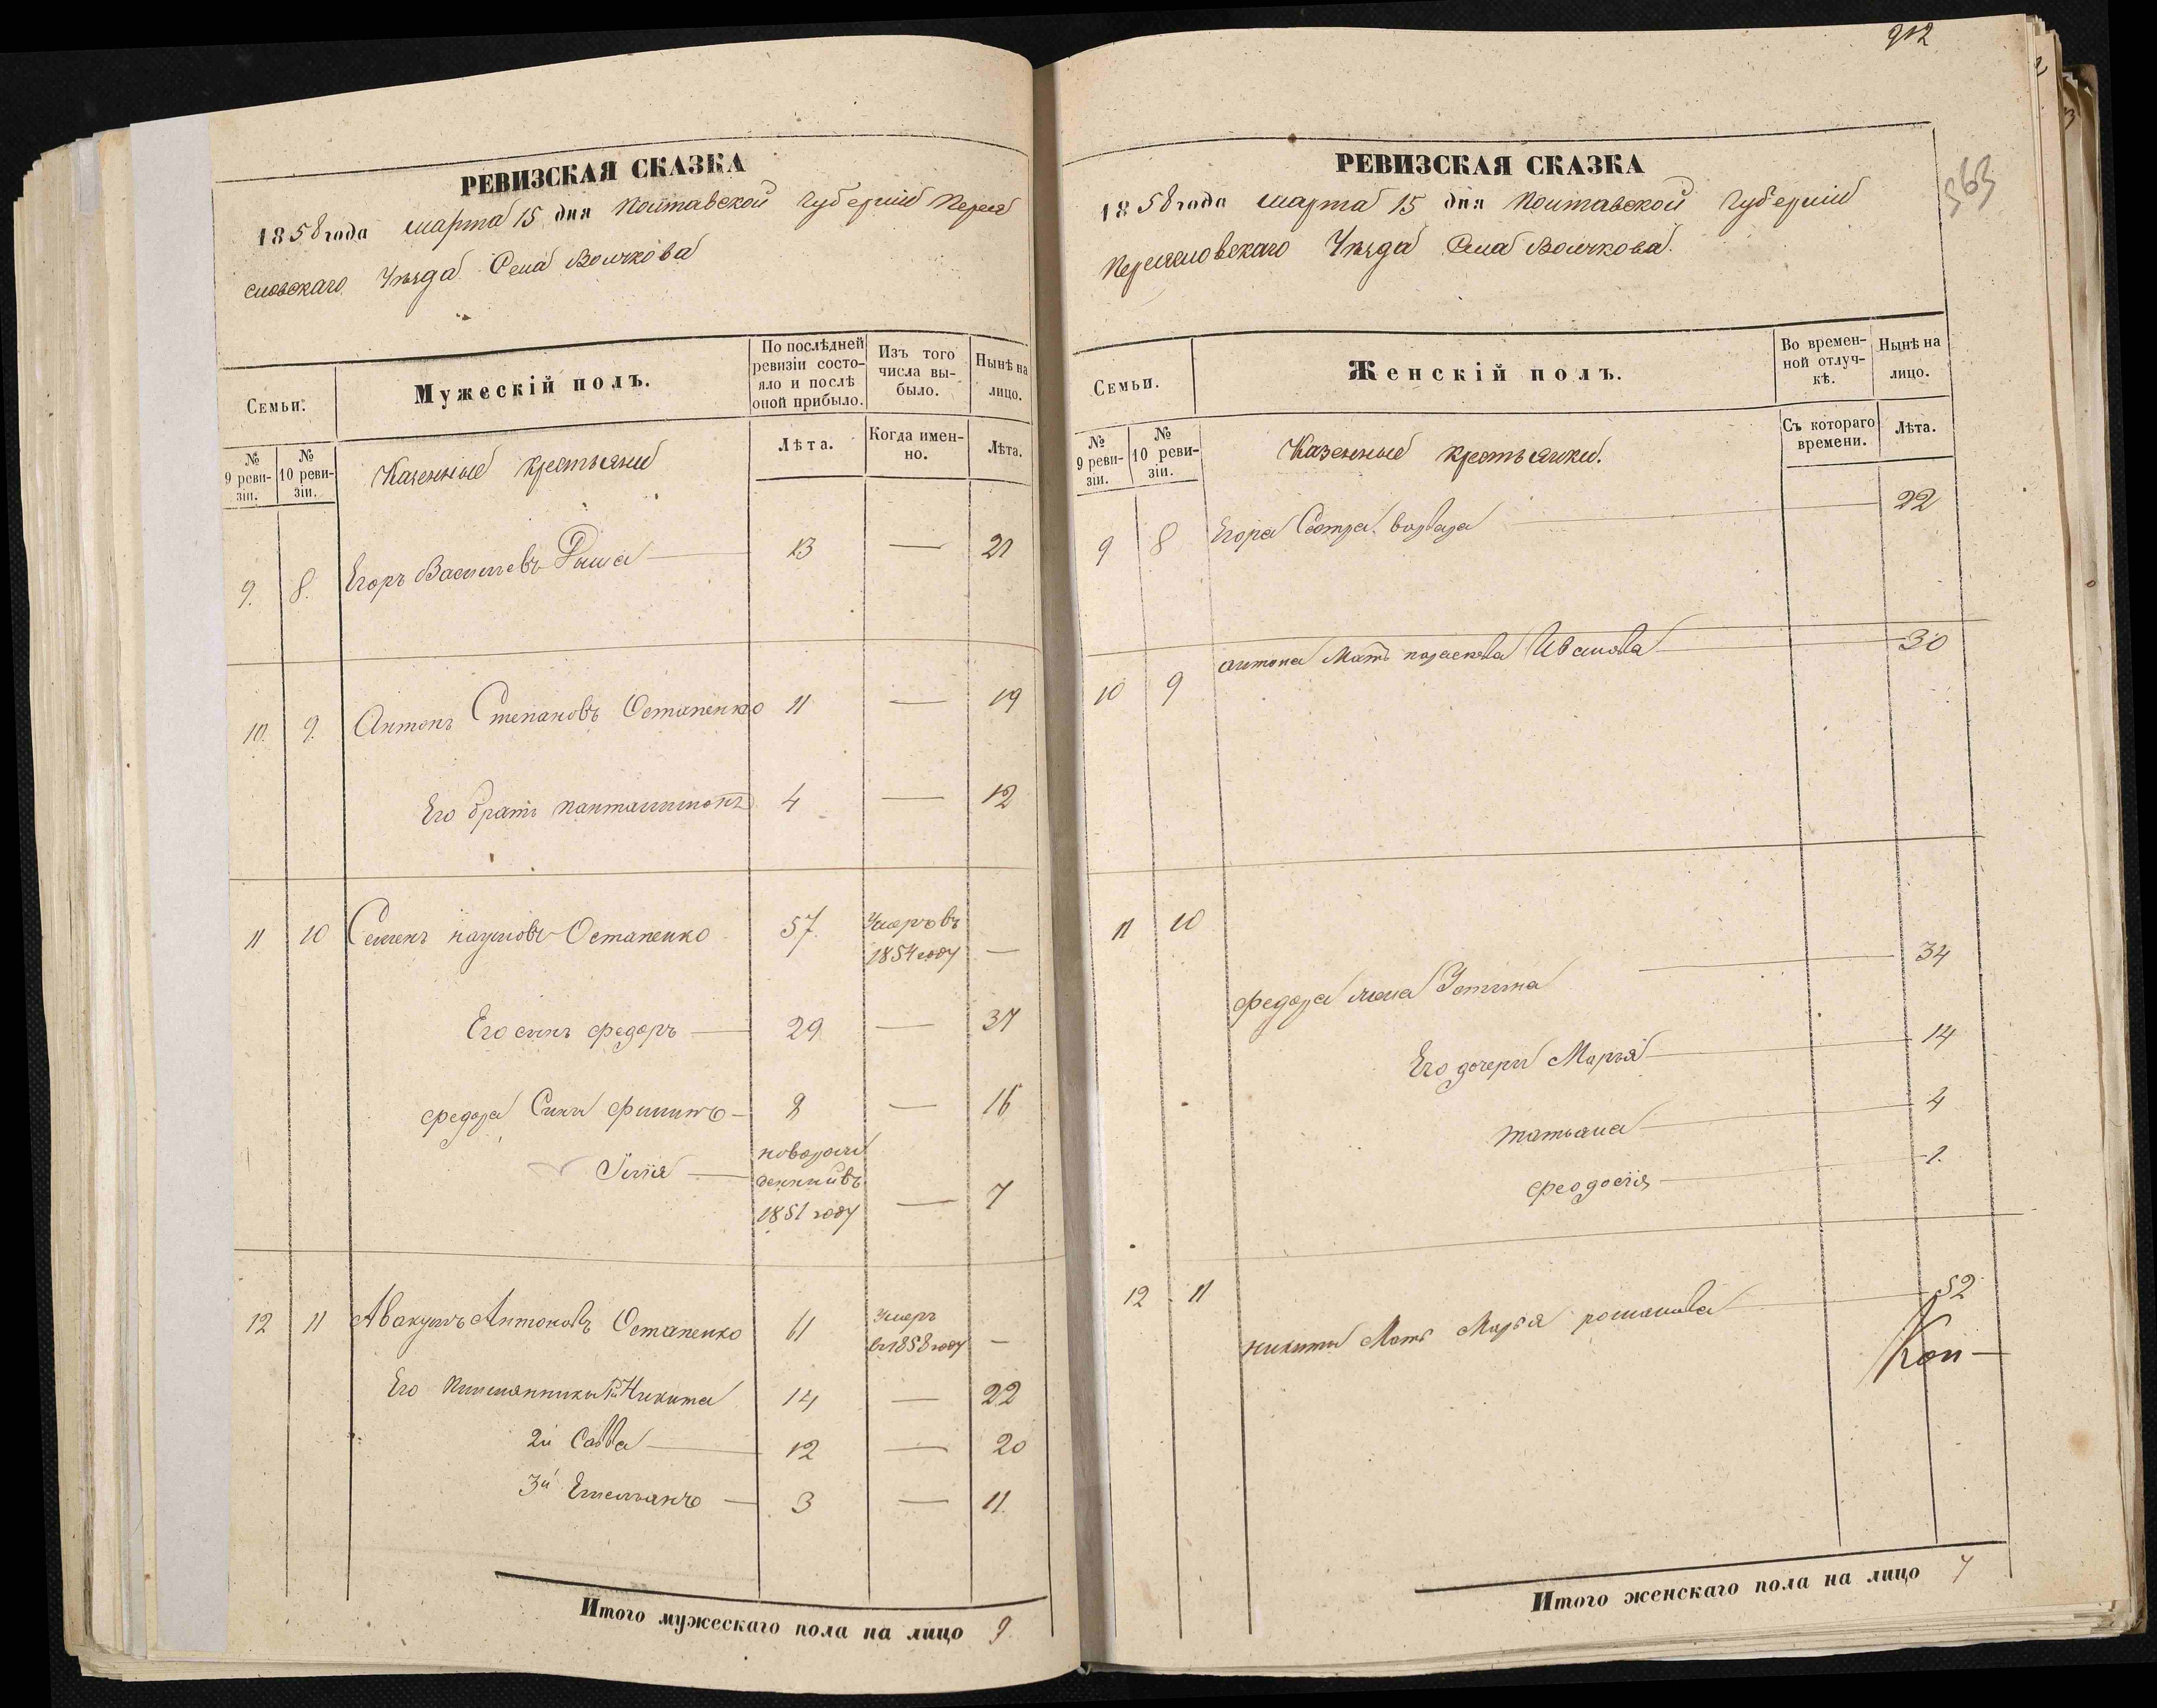 РЕВИЗСКАЯ СКАЗКА
1858 года марта 15 дня Полтавской Губерніи Переяс
ловскаго Уѣзда Села Волчкова
Семьи.
Мужескій полъ.
По послѣдней ревизіи состо-
яло и послѣ
оной прибыло.
Изъ того
числа вы-
было.
Нынѣ на
лицо.
№
9 реви-
зіи.
№
10 реви-
зіи.
Казенные крестьяне
Лѣта.
Когда имен-
но.
Лѣта.
9. 8. Егоръ Васильевъ 13 — 21
10. 9. Антонъ Степановъ Остапенко 11 — 19
Его братъ Пантелимонъ 4 — 12
11 10 Семенъ Наумовъ Остапенко 57 Умеръ въ
1854 году —
Его сынъ Федоръ 29 — 37
Федора Сынъ Филипъ 8 — 16
Илія новорож
денный въ
1851 году — 7
12 11 Авакумъ Антоновъ Остапенко 61 Умеръ
въ 1858 году —
Его племянники 1й Никита 14 — 22
2й Савва 12 — 20
3й Емельянъ 3 — 11.
Итого мужескаго пола на лицо 9.
912
363
РЕВИЗСКАЯ СКАЗКА
1858 года марта 15 дня Полтавской Губерніи
Переясловскаго Уѣзда Села Волчкова.
Семьи.
Женскій полъ.
Во времен-
ной отлуч-
кѣ.
Нынѣ на
лицо.
№
9 реви-
зіи.
№
10 реви-
зіи.
Казенные крестьянки.
Съ котораго
времени.
Лѣта.
9 8 Егора Сестра Варвара 22
10 9 Антона Мать Параскева Иванова 30
11 10
Федора жена Устина 34
Его дочери Марья 14
Татьяна 4
Феодосія 1.
12 11 Никиты Мать Марья Романова 52
Итого женскаго пола на лицо 7